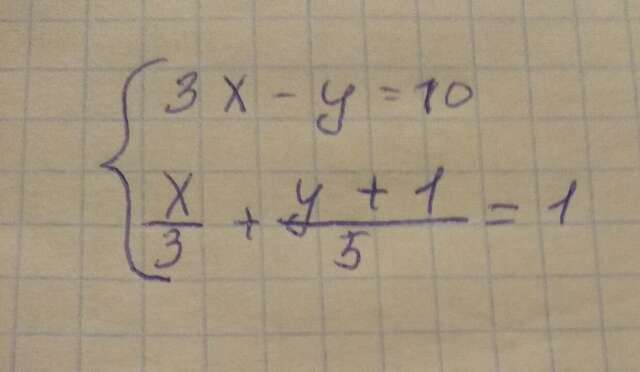 3x - y = 10
x/3 + (y + 1)/5 = 1